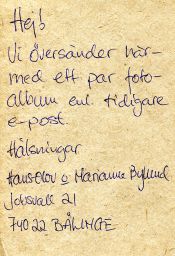 Hej!
Vi översänder här-
med ett par foto-
album enl. tidigare
e-post.
Hälsningar
Hans-Olov o Marianne Bylund
21
740 22 BÄLINGE